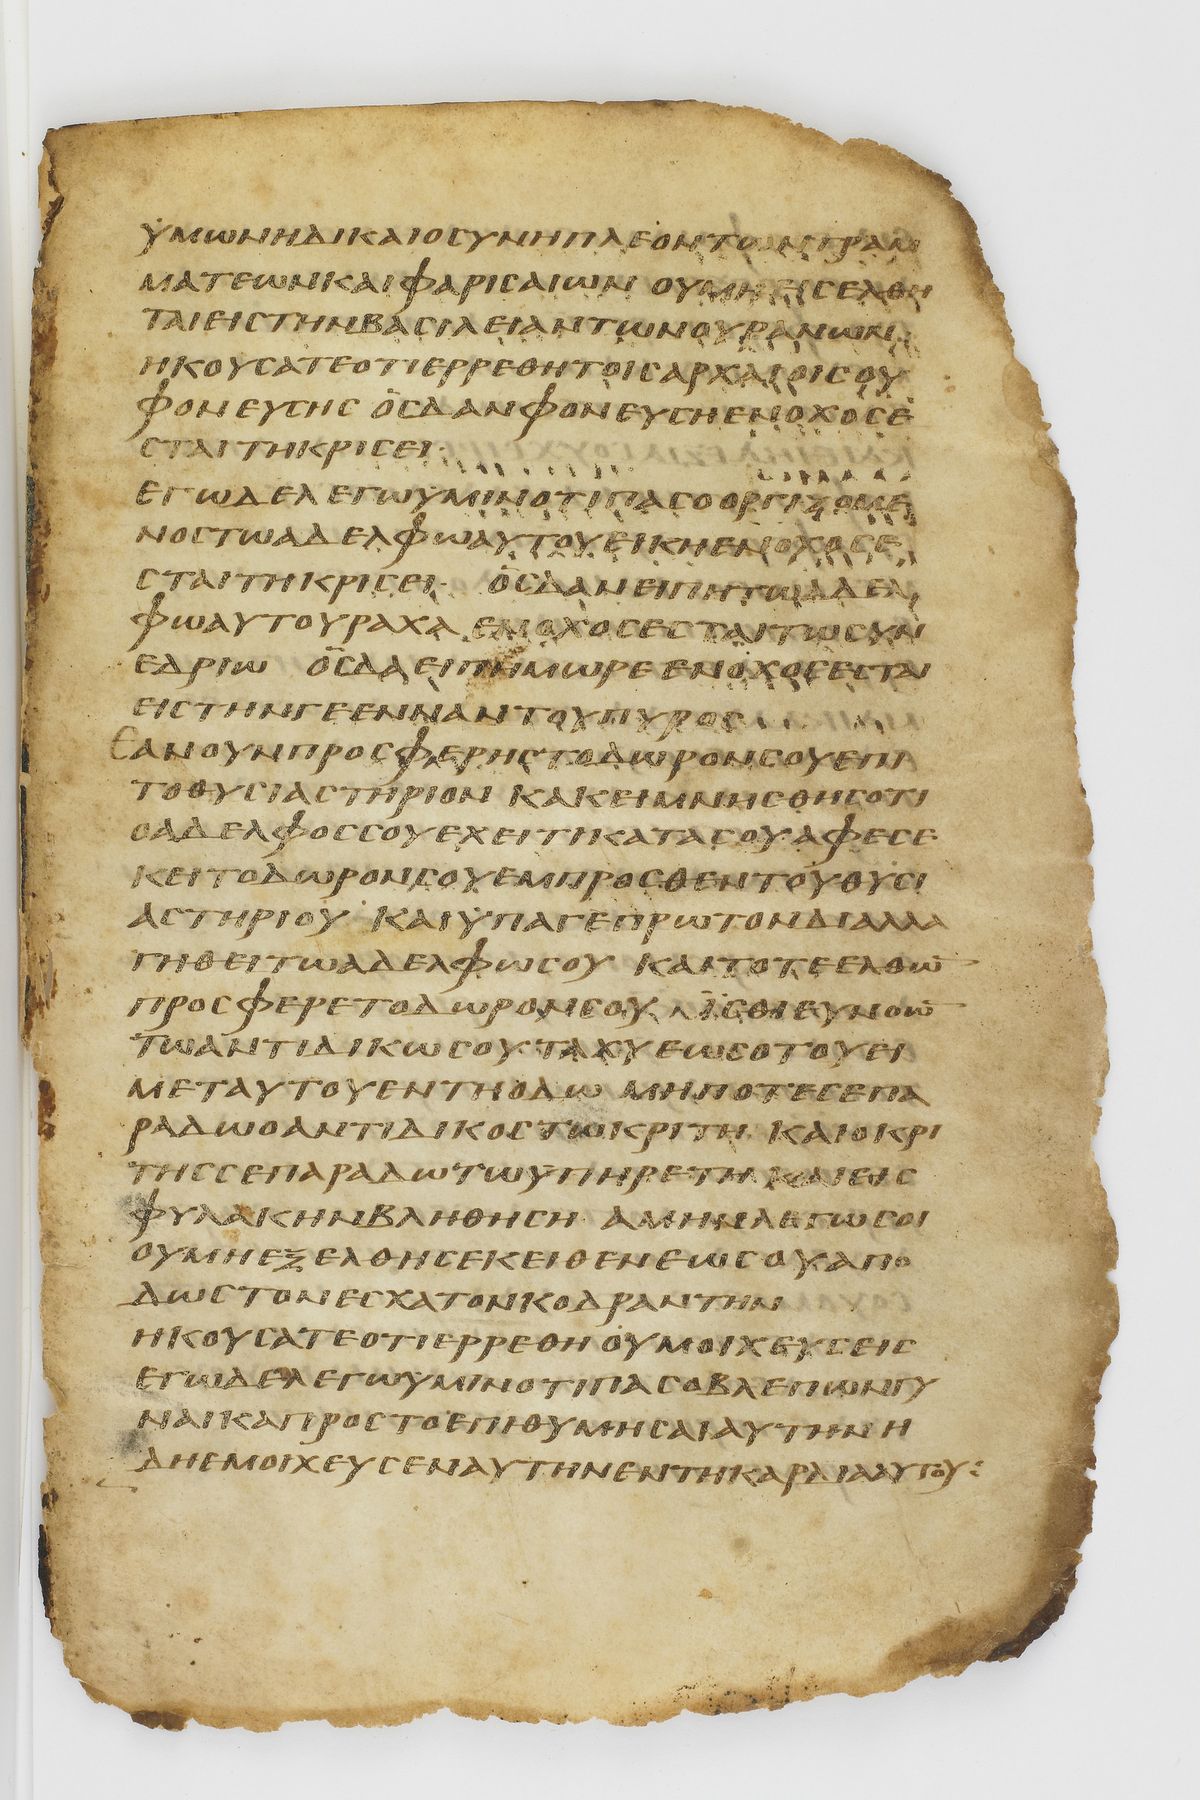 ΫΜΩΝΗΔΙΚΑΙΟСΥΝΗΠΛΕΟΝΤΩΝΓΡΑΜ
ΜΑΤΕΩΝΚΑΙΦΑΡΙСΑΙΩΝ ΟΥΜΗΕΙСΕΛΘΗ
ΤΑΙΕΙСΤΗΝΒΑСΙΛΕΙΑΝΤΩΝΟΥΡΑΝΩΝ·
ΗΚΟΥСΑΤΕΟΤΙΕΡΡΕΘΗΤΟΙСΑΡΧΑΙΟΙСΟΥ
ΦΟΝΕΥСΗС ΟСΔΑΝΦΟΝΕΥСΗΕΝΟΧΟСΕ
СΤΑΙΤΗΚΡΙСΕΙ·
ΕΓΩΔΕΛΕΓΩΥΜΙΝΟΤΙΠΑСΟΟΡΓΙΖΟΜΕ
ΝΟСΤΩΑΔΕΛΦΩΑΥΤΟΥΕΙΚΗΕΝΟΧΟСΕ
СΤΑΙΤΗΚΡΙСΕΙ· ΟСΔΑΝΕΙΠΗΤΩΑΔΕΛ
ΦΩΑΥΤΟΥΡΑΧΑ ΕΝΟΧΟСΕСΤΑΙΤΩСΥΝ
ΕΔΡΙΩ ΟСΔΑΕΙΠΗΜΩΡΕΕΝΟΧΟСΕСΤΑΙ
ΕΙСΤΗΝΓΕΕΝΝΑΝΤΟΥΠΥΡΟС
ΕΑΝΟΥΝΠΡΟСΦΕΡΗСΤΟΔΩΡΟΝСΟΥΕΠΙ
ΤΟΘΥСΙΑСΤΗΡΙΟΝ ΚΑΚΕΙΜΝΗСΘΗСΟΤΙ
ΟΑΔΕΛΦΟССΟΥΕΧΕΙΤΙΚΑΤΑСΟΥ·ΑΦΕСΕ
ΚΕΙΤΟΔΩΡΟΝСΟΥΕΜΠΡΟСΘΕΝΤΟΥΘΥСΙ
ΑСΤΗΡΙΟΥ ΚΑΙΫΠΑΓΕΠΡΩΤΟΝΔΙΑΛΛΑ
ΓΗΘΕΙΤΩΑΔΕΛΦΩСΟΥ ΚΑΙΤΟΤΕΕΛΘΩ̅
ΠΡΟСΦΕΡΕΤΟΔΩΡΟΝСΟΥ ΪСΘΙΕΥΝΟΩ̅
ΤΩΑΝΤΙΔΙΚΩСΟΥ·ΤΑΧΥΕΩСΟΤΟΥΕΙ
ΜΕΤΑΥΤΟΥΕΝΤΗΟΔΩ ΜΗΠΟΤΕСΕΠΑ
ΡΑΔΩΟΑΝΤΙΔΙΚΟСΤΩΚΡΙΤΗ· ΚΑΙΟΚΡΙ
ΤΗССΕΠΑΡΑΔΩΤΩΫΠΗΡΕΤΗ ΚΑΙΕΙС
ΦΥΛΑΚΗΝΒΛΗΘΗСΗ ΑΜΗΝΛΕΓΩСΟΙ
ΟΥΜΗΕΞΕΛΘΗСΕΚΕΙΘΕΝΕΩСΟΥΑΠΟ
ΔΩСΤΟΝΕСΧΑΤΟΝΚΟΔΡΑΝΤΗΝ
ΗΚΟΥСΑΤΕΟΤΙΕΡΡΕΘΗ ΟΥΜΟΙΧΕΥСΕΙС
ΕΓΩΔΕΛΕΓΩΥΜΙΝΟΤΙΠΑСΟΒΛΕΠΩΝΓΥ
ΝΑΙΚΑΠΡΟСΤΟΕΠΙΘΥΜΗСΑΙΑΥΤΗΝΗ
ΔΗΕΜΟΙΧΕΥСΕΝΑΥΤΗΝΕΝΤΗΚΑΡΔΙΑΑΥΤΟΥ: